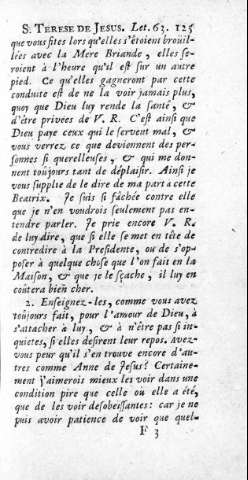 S. TERESE DE JESUS. Let. 63. 125
que vous fites lors qu'elles s'étoient broüil-
lées avec la Mere Briande, elles se-
roient à l'heure qu'il est sur un autre
pied. Ce qu'elles gagneront par cette
conduite est de ne la voir jamais plus,
quoy que Dieu luy rende la santé, &
d'être privées de V. R. C'est ainsi que
Dieu paye ceux qui le servent mal, &
vous verrez ce que deviennent des per-
sonnes si querelleuses, & qui me don-
nent toûjours tant de déplaisir. Ainsi je
vous supplie de le dire de ma part a cette
Beatrix. Je suis si fâchée contre elle
que je n'en voudrois seulement pas en-
tendre parler. Je prie encore V. R.
de luy dire, que si elle se met en tête de
contredire à la Presidente, ou de s'op-
poser à quelque chose que l'on fait en la
Maison, & que je le sçache, il luy en
coûtera bien cher.
2. Enseignez-les, comme vous avez
toûjours fait, pour l'amour de Dieu, à
s'attacher à luy, & à n'être pas si in-
quietes, si elles desirent leur repos. Avez-
vous peur qu'il s'en trouve encore d'au-
tres comme Anne de Jesus? Certaine-
ment j'aimerois mieux les voir dans une
condition pire que celle où elle a été,
que de les voir desobeïssantes: car je ne
puis avoir patience de voir que quel-
F 3